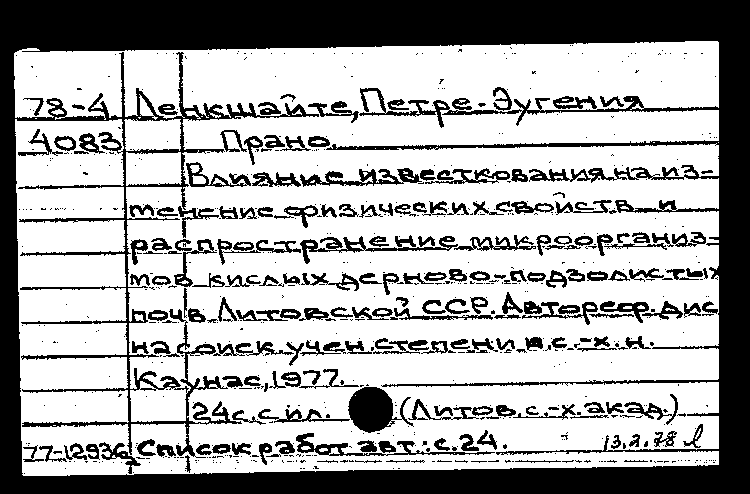 78-4 Ленкшайте, Петре-Эугения
4083 Прано.
Влияние известкования на из-
менение физических свойств и
распространение микроорганиз-
мов кислых дерново-подзолистых
почв Литовской ССР. Автореф. дис
на соиск. учен. степени к.с.-х.н.
Каунас, 1977.
24с. с ил. (Литов. с.-х. акад.)
77-12936 Список работ авт.: с. 24. 13.2.78